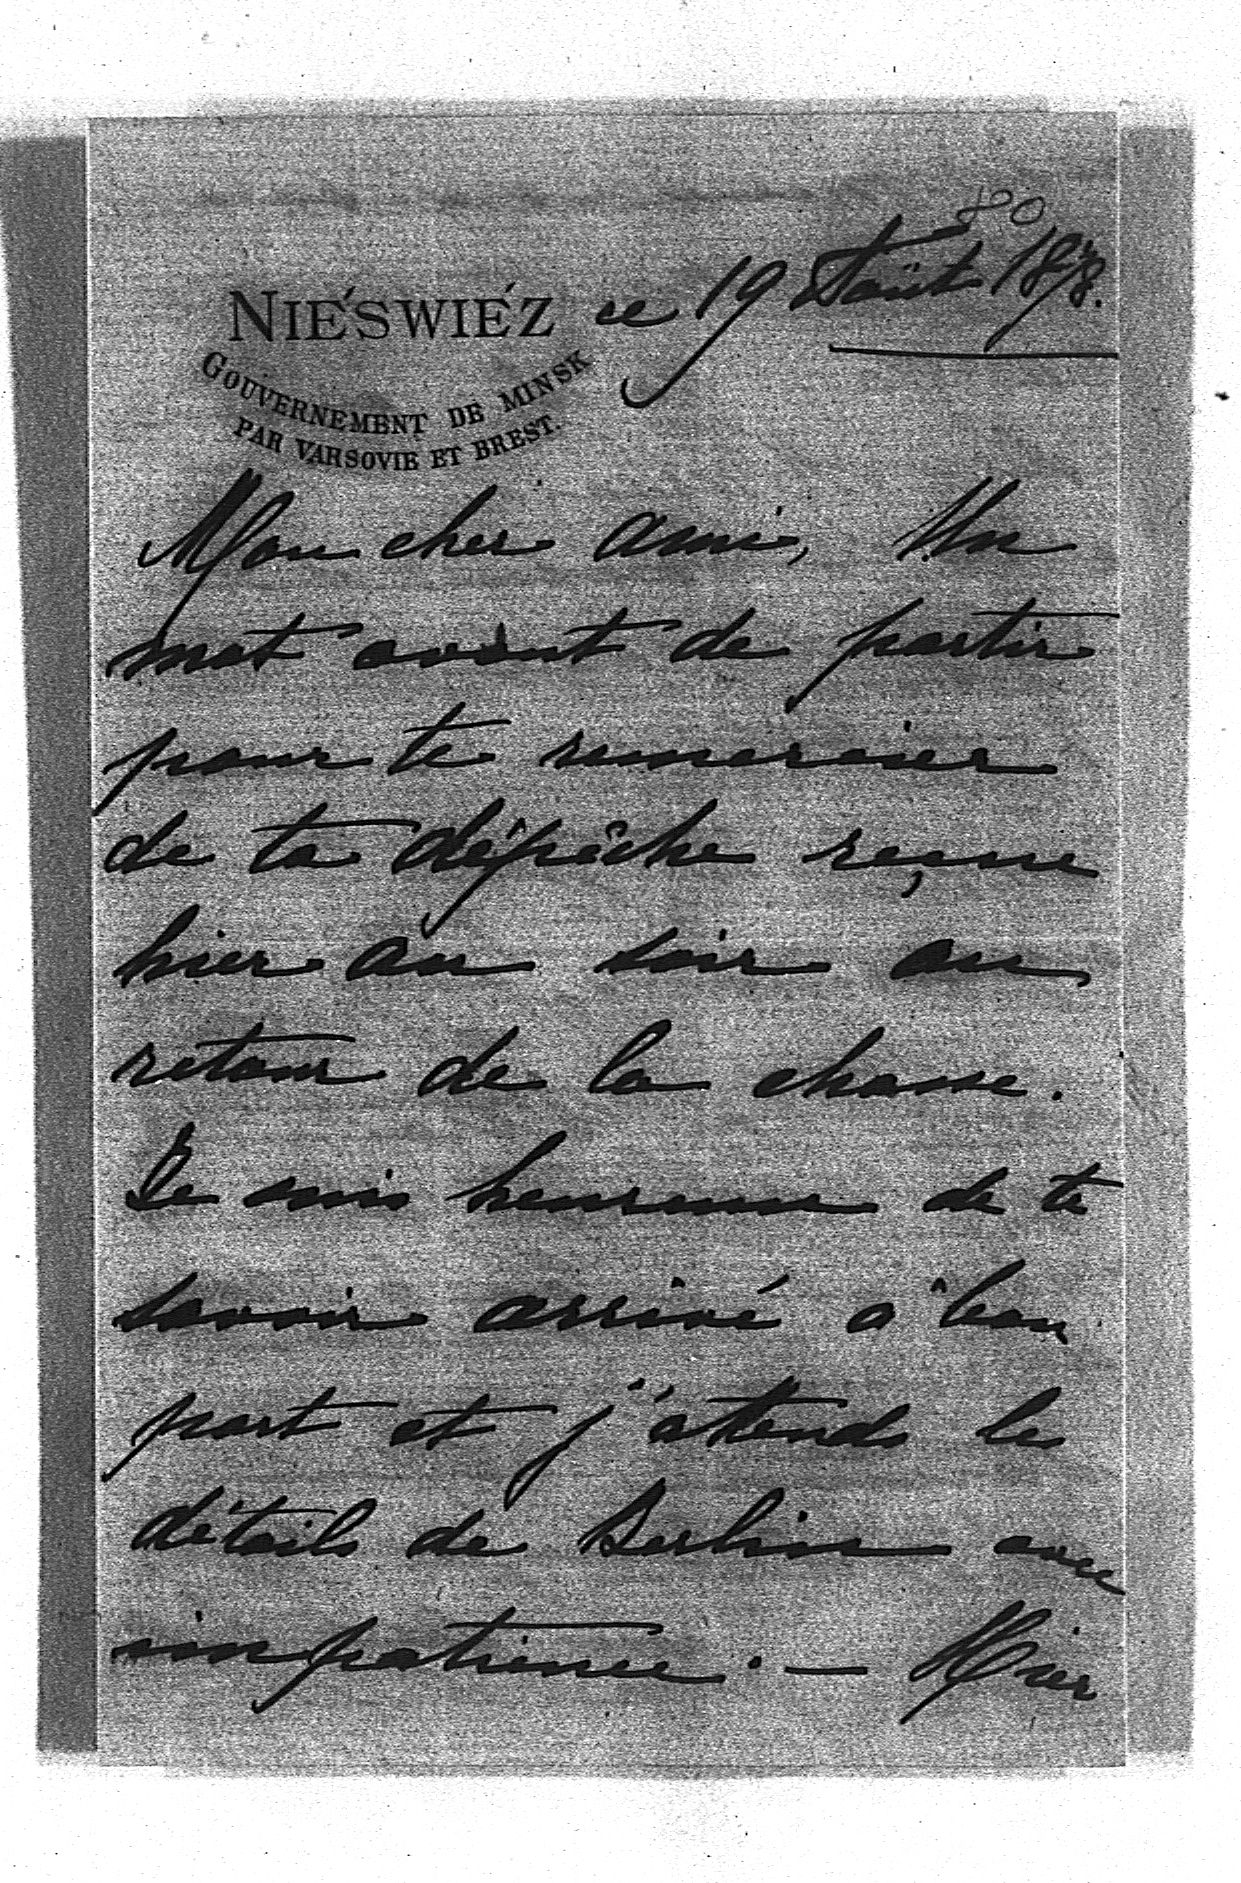 80
NIEŚWIEŻ ce 19 Août 1898.
GOUVERNEMENT DE MINSK
PAR VARSOVIE ET BREST.
Mon cher ami, Un
mot avant de partir
pour te remercier
de ta dépêche reçue
hier au soir au
retour de la chasse.
Je suis heureuse de te
savoir arrivé à bon
port et j'attends les
détails de Berlin avec
impatience. — Hier